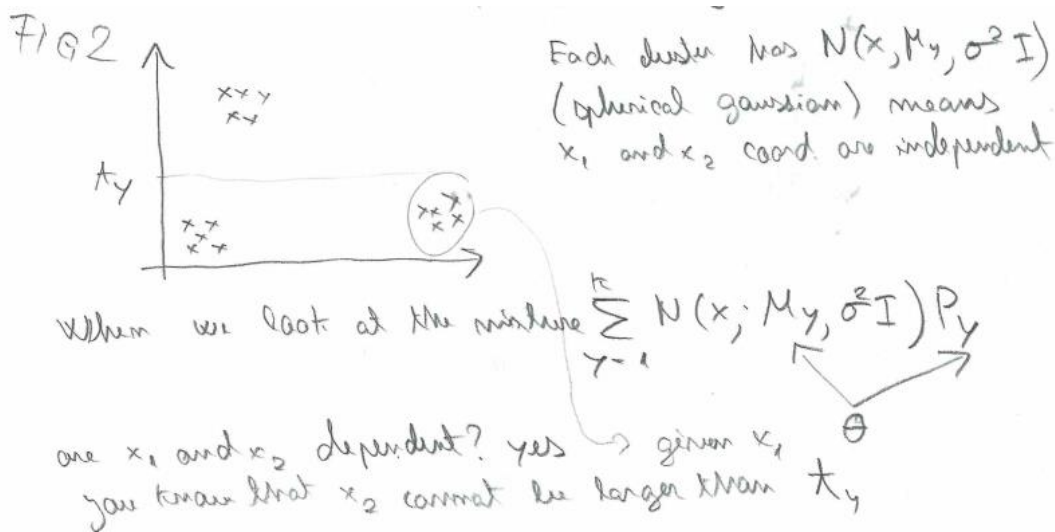 FIG2
Each cluster has N(x, μy, σ² I)
(spherical gaussian) means
x₁ and x₂ coord are independent
ty
When we look at the mixture ∑ N(x; μy, σ²I) Py
k
y=1
θ
are x₁ and x₂ dependent? yes → given x₁
you know that x₂ cannot be larger than ty